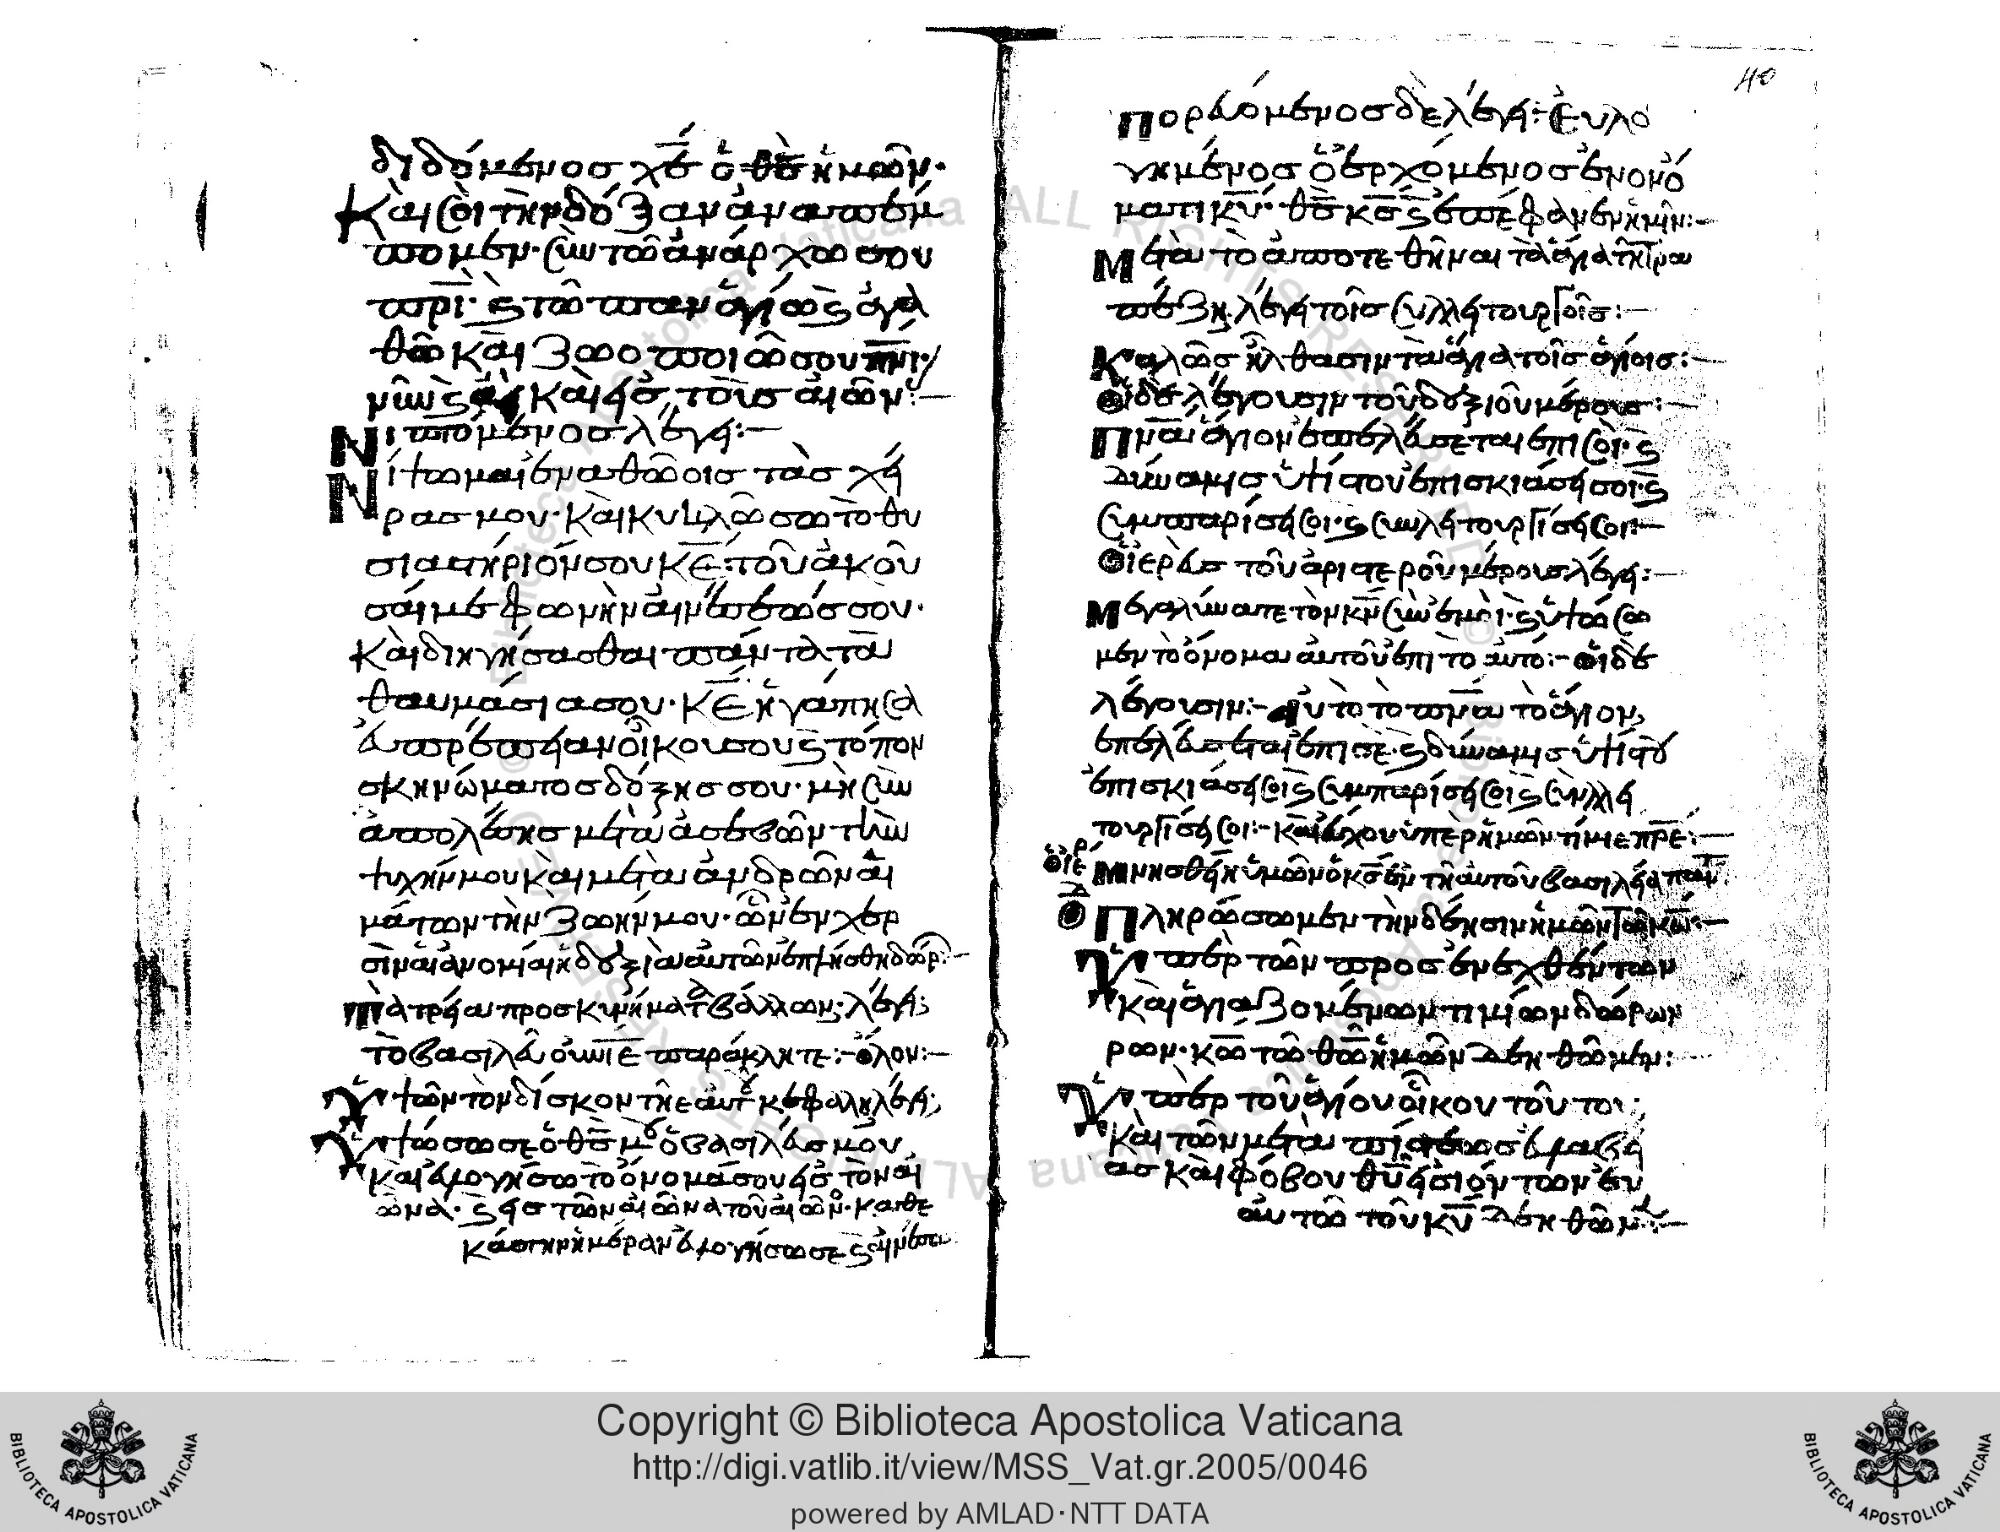 διδόμενος χέ ὁ θς ἡμῶν·
Καὶ σοὶ τὴν δόξαν ἀναπέμ
πομεν· σὺν τῶ ἀνάρχω σου
πρί· ϗ τῶ παναγίω ϗ ἀγα
θῶ καὶ ζωοποιῶ σου πνι·
νῦν ϗ ἀεὶ καὶ εἰς τοὺς αἰῶν:
Νιπτόμενος λέγει:
Νίψωμαι ἐν ἀθώοις τὰς χεῖ
ρας μου· καὶ κυκλώσω τὸ θυ
σιαστήριόν σου κε: τοῦ ἀκοῦ
σαί με φωνὴν αἰνέσεώς σου·
Καὶ διηγήσασθαι πάντα τὰ
θαυμάσια σου· Κε ἠγάπησα
εὐπρέπειαν οἴκου σου ϗ τόπον
σκηνώματος δόξης σου· μὴ συν
ἀπολέσης μετὰ ἀσεβῶν τὴν
ψυχήν μου καὶ μετὰ ἀνδρῶν αἱ
μάτων τὴν ζωήν μου· ὧν ἐν χερ
σὶν αἱ ἀνομίαι ἡ δεξιὰ αὐτῶν ἐπλήσθη δώρ:
προσκυνήματ βάλλων· λέγει:
τὸ βασιλεῦ οὐνιε παράκλητε:- ὅλον:-
Ὑψῶν τὸν δίσκον τῆ κεφαλῆ λέγει:
Ὑψώσω σε ὁ θς μου ὁ βασιλεύς μου
καὶ εὐλογήσω τὸ ὄνομά σου εἰς τὸν αἰ
ῶνα· ϗ εἰς τὸν αἰῶνα τοῦ αἰῶν· καθ ε
κάστην ἡμέραν εὐλογήσω σε ϗ αἰνέσω
40
πορευόμενος δὲ λέγει: Εὐλο
γημένος ὁ ἐρχόμενος ἐν ὀνό
ματι κυ· θς κς ϗ ἐπέφανεν ἡμῖν:-
Μετὰ τὸ ἀποτεθῆναι τὰ ἅγια τῆ τρα
πέζη λέγει τοῖς συλλειτουργοῖς:-
Καλῶς ἤλθασιν τὰ ἅγια τοῖς ἁγίοις:-
Οἱ δὲ λέγουσιν τοῦ δεξιοῦ μέρους:-
Πνα ἅγιον ἐπελεύσεται ἐπὶ σοὶ· ϗ
δύναμις ὑψίστου ἐπισκιάσει σοι· ϗ
συμπαρίσει σοι· ϗ συλλειτουργίσει σοι:-
Ὁ ἱερεὺς τοῦ ἀριστεροῦ μέρους λέγει:-
Μεγαλύνατε τὸν κν σὺν ἐμοὶ· ϗ ὑψώσω
μεν τὸ ὄνομα αὐτοῦ ἐπὶ τὸ αὐτό:- οἱ δὲ
λέγουσιν:- αὐτὸ τὸ πνα τὸ ἅγιον,
ἐπελεύσεται ἐπὶ σὲ· ϗ δύναμις ὑψίστου
ἐπισκιάσει σοι ϗ συμπαρίσει σοὶ ϗ συλλει
τουργίσει σοι:- Καὶ εὔχου ὑπὲρ ἡμῶν τίμιε πρε:-
ὁ ἱερ Μνησθείη ὑμῶν ὁ κς ἐν τῆ αὐτοῦ βασιλεία παντ
Ὁ δ Πληρώσωμεν τὴν δέησιν ἡμῶν τῶ κω:-
Ὑπὲρ τῶν προσενεχθέντων
καὶ ἁγιαζομένων τιμίων δώρων
ρων· κω τῶ θω ἡμῶν δεηθῶμεν:
Ὑπὲρ τοῦ ἁγίου οἴκου τοῦ τοι:
καὶ τῶν μετὰ πίστεως εὐλαβεί
ας καὶ φόβου θυ εἰσιόντων ἐν
αὐτῶ τοῦ κυ δεηθῶμεν:-
Copyright © Biblioteca Apostolica Vaticana
http://digi.vatlib.it/view/MSS_Vat.gr.2005/0046
powered by AMLAD·NTT DATA
BIBLIOTECA APOSTOLICA VATICANA
BIBLIOTECA APOSTOLICA VATICANA